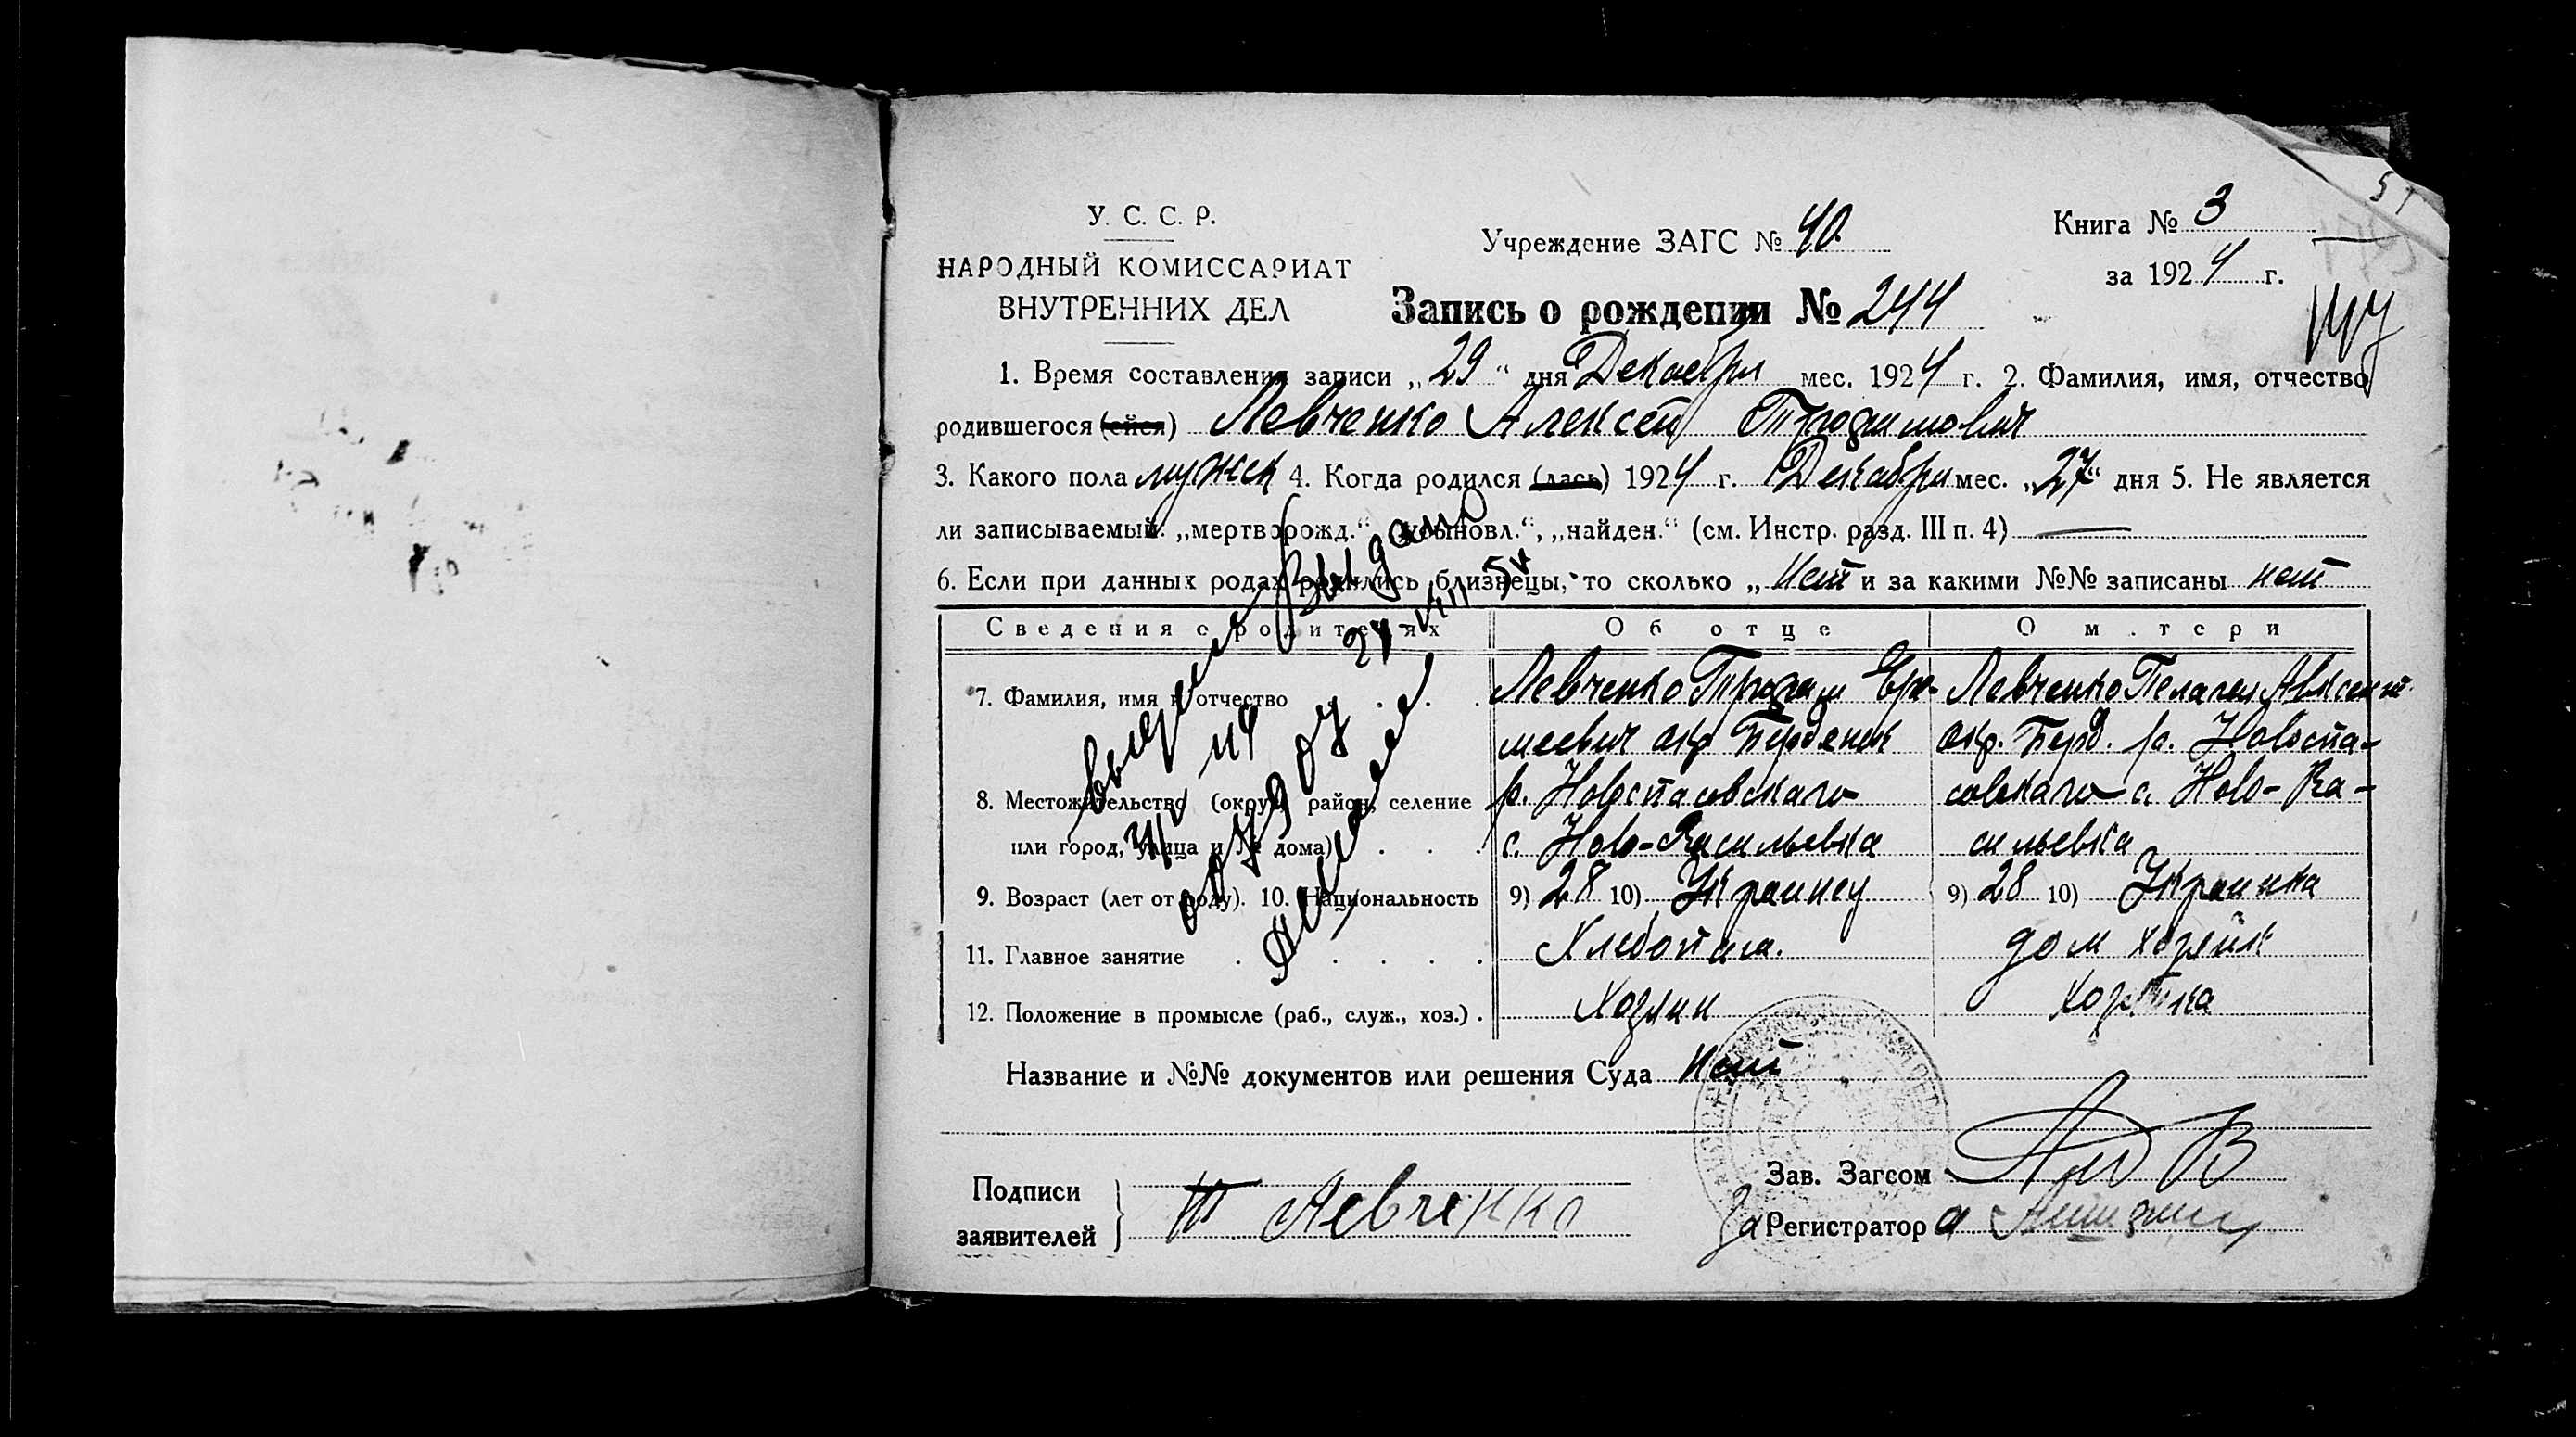 У. С. С. Р.
НАРОДНЫЙ КОМИССАРИАТ
ВНУТРЕННИХ ДЕЛ
Учреждение ЗАГС № 40
Книга № 3
за 1924 г.
51
Запись о рождении № 244
1. Время составления записи „29“ дня Декабря мес. 1924 г. 2. Фамилия, имя, отчество
родившегося (ейся) Левченко Алексей Трофимович
3. Какого пола мужск 4. Когда родился (лась) 1924 г. Декабря мес. „27“ дня 5. Не является
ли записываемый: „мертворожд.“ „усыновл.“, „найден.“ (см. Инстр. разд. III п. 4)
6. Если при данных родах родились близнецы, то сколько „ нет и за какими №№ записаны нет
Сведения о родителях Об отце О м.тери
7. Фамилия, имя и отчество
Левченко Трофим Ере-
меевич окр Бердянск
р. Новоспасовскаго
с. Ново-Васильевка
Левченко Пелагея Авксент.
окр. Берд. р. Новоспа-
совскаго с. Ново-Ва-
сильевка
8. Местожительство (округ, район, селение
или город, улица и № дома)
9. Возраст (лет от роду). 10. Национальность 9) 28 10) Украинец 9) 28 10) Украинка
11. Главное занятие Хлебопаш. дом хозяйк
12. Положение в промысле (раб., служ., хоз.) Хозяин Хозяйка
Выдано
Название и №№ документов или решения Суда нет
Подписи
заявителей
Т Левченко
Зав. Загсом
За Регистратор а